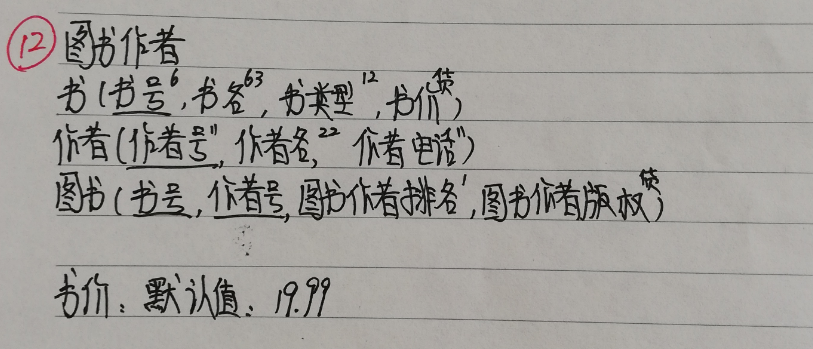 12 图书作者
书(书号6,书名63,书类型12,书价货)
作者(作者号11,作者名,22 作者电话11)
图书(书号,作者号,图书作者排名1,图书作者版权货)
书价:默认值:19.99